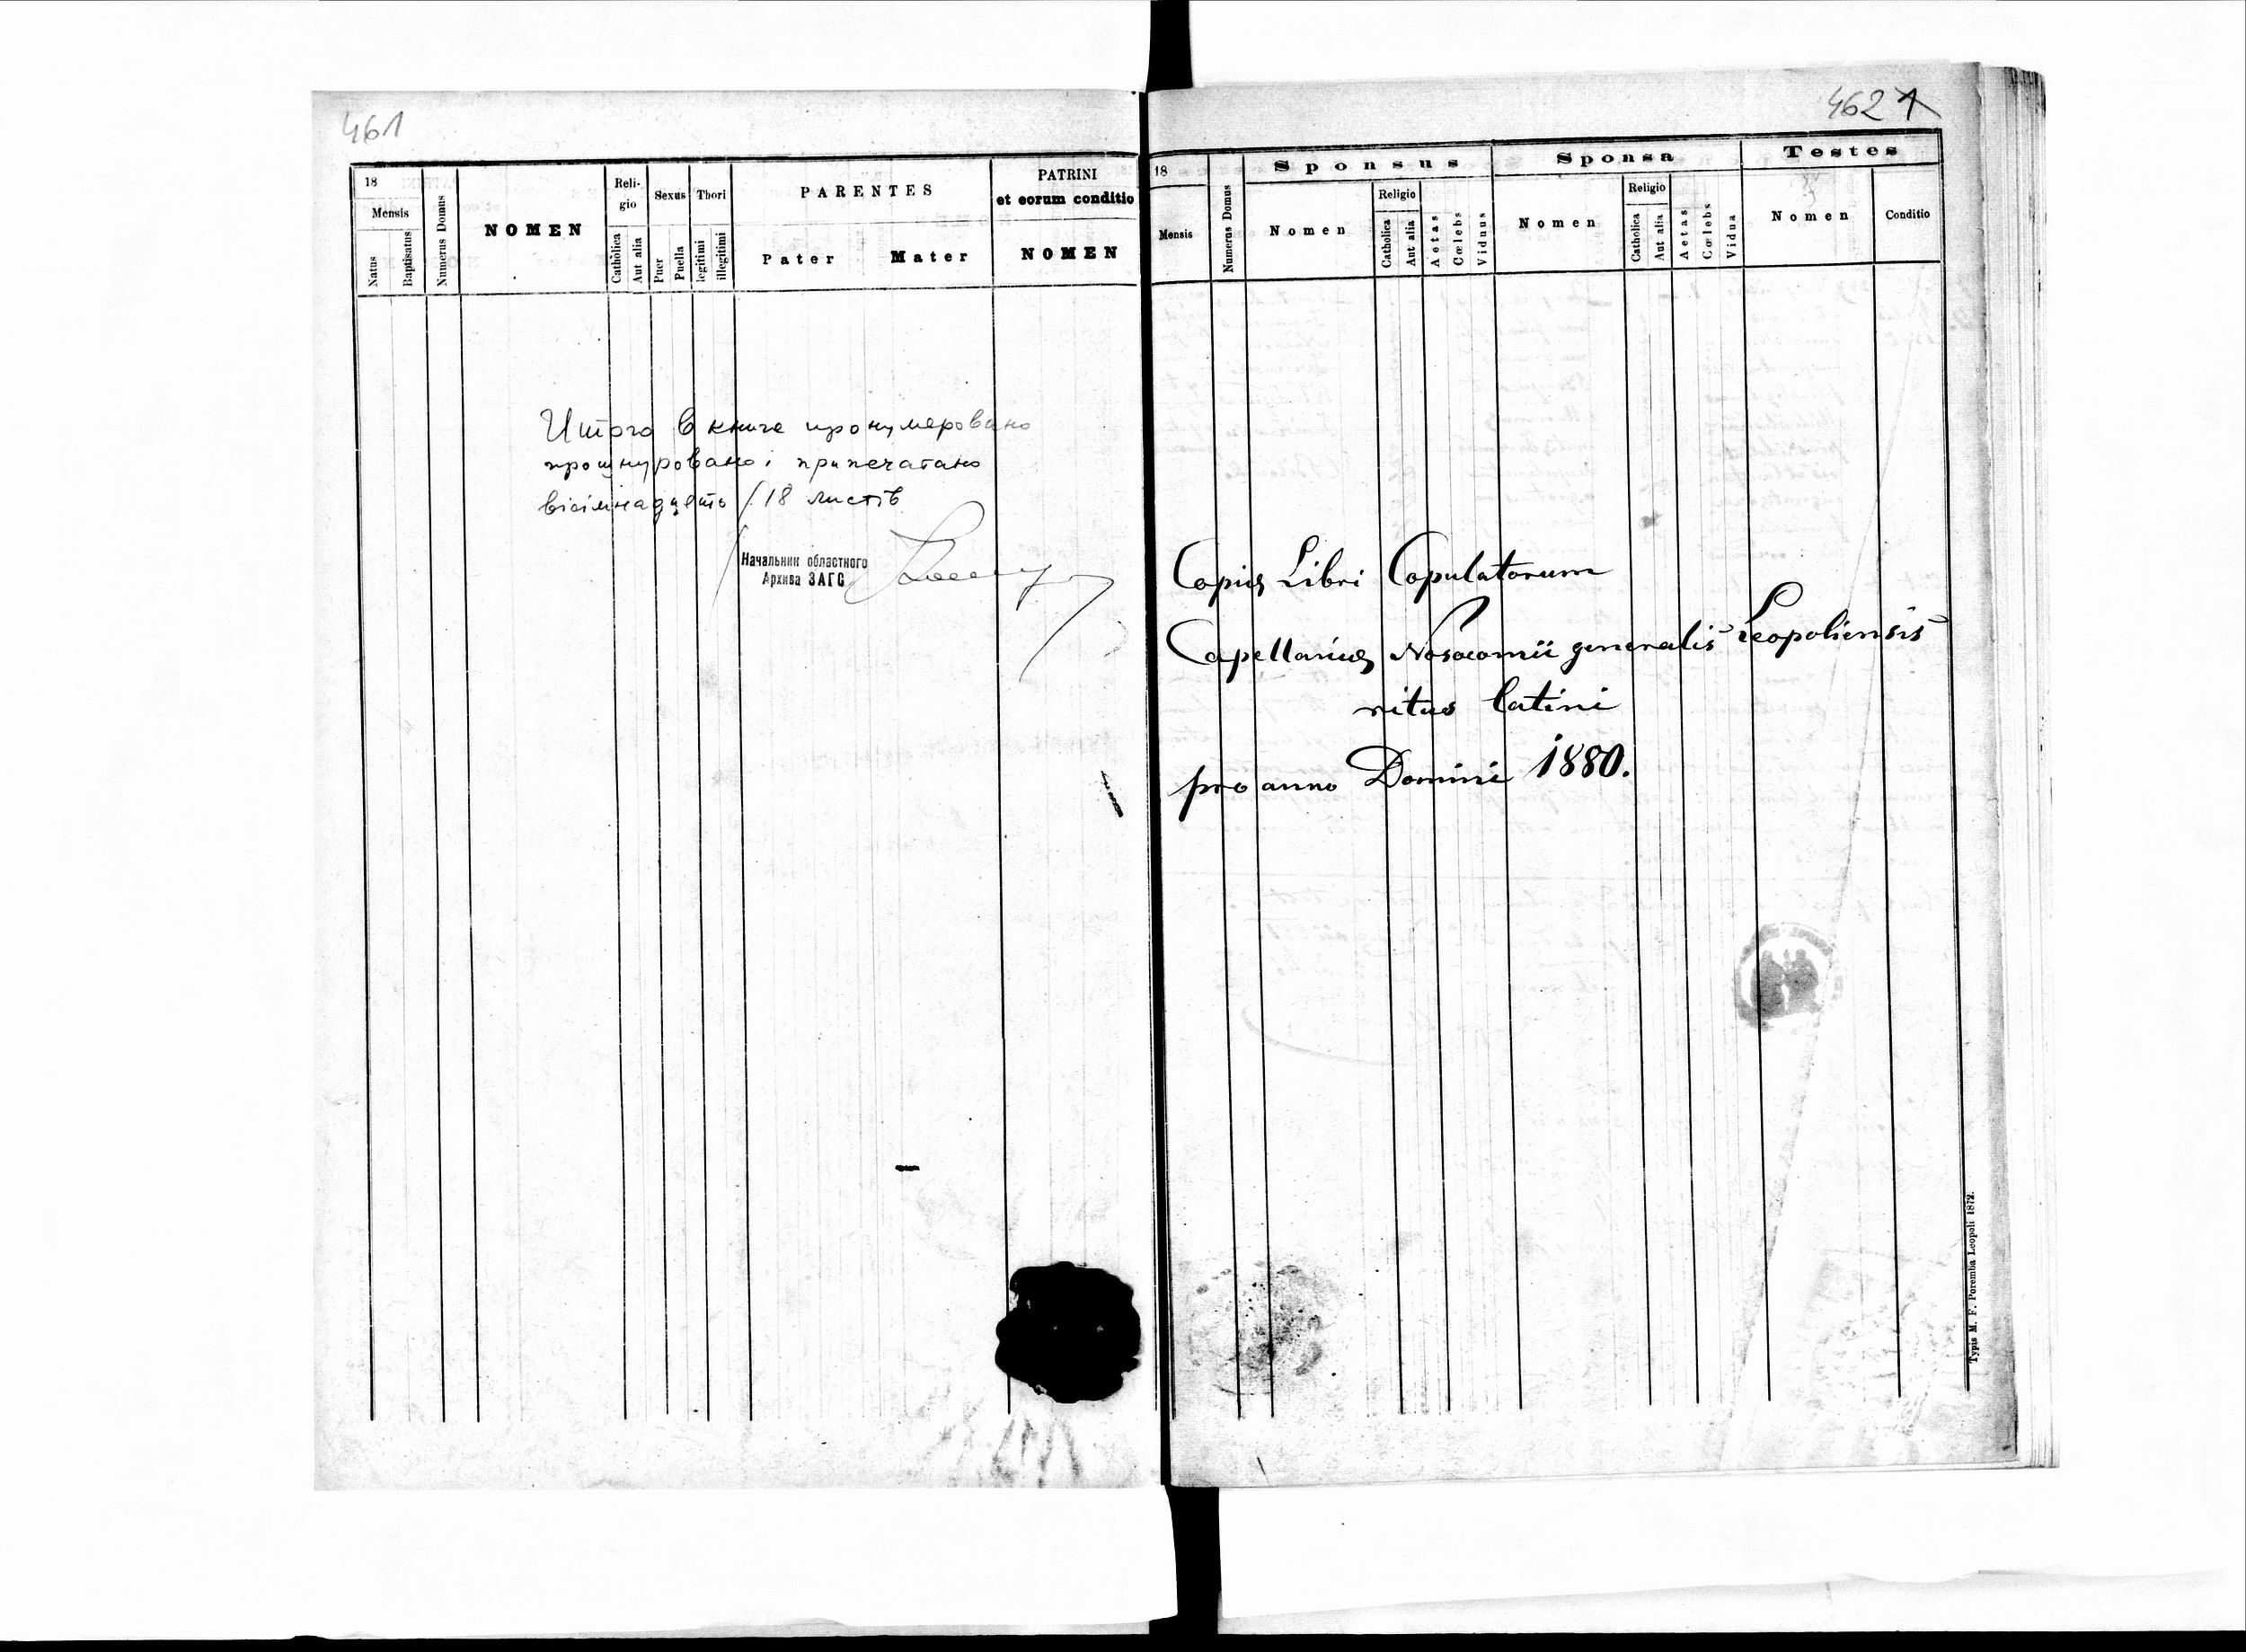 461
18
Mensis
Natus
Baptisatus
Numerus Domus
NOMEN
Reli-
gio
Catholica
Aut alia
Sexus
Puer
Puella
Thori
legitimi
illegitimi
PARENTES
Pater
Mater
PATRINI
et eorum conditio
NOMEN
Итого в книге пронумеровано
прошнуровано і припечатано
вісімнадцять / 18 листів
Начальник областного
Архива ЗАГС
462 1
18
Mensis
Numerus Domus
Sponsus
Nomen
Religio
Catholica
Aut alia
Aetas
Cœlebs
Viduus
Sponsa
Nomen
Religio
Catholica
Aut alia
Aetas
Cœlebs
Vidua
Testes
Nomen
Conditio
Copia Libri Copulatorum
Capellaniae Nosocomii generalis Leopoliensis
ritus latini
pro anno Domini 1880.
Typis M. F. Poremba Leopoli 1872.